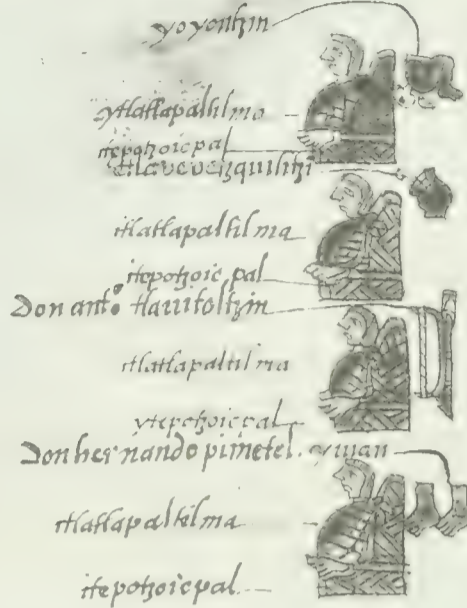 yoyontzin
ytlatlapaltilma
itepotzoicpal
tlavevetzquititzi
itlatlapaltilma
itepotzoicpal
Don antº. tlauitoltzin
itlatlapaltilma
ytepotzoicpal
Don hernando pimetel.
itlatlapaltilma
itepotzoicpal